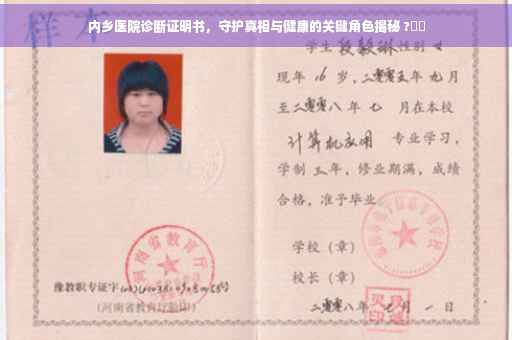 内乡医院诊断证明书，守护真相与健康的关键角色揭秘？
样本
学生段毅琳性别女
现年16岁，二零零五年九月
至二零零八年七月在本校
计算机应用 专业学习，
学制三年，修业期满，成绩
合格，准予毕业
学校（章）
校长（章）
二零零八年七月一日
河南省教育厅
豫教职专证字
(河南省教育厅验印)